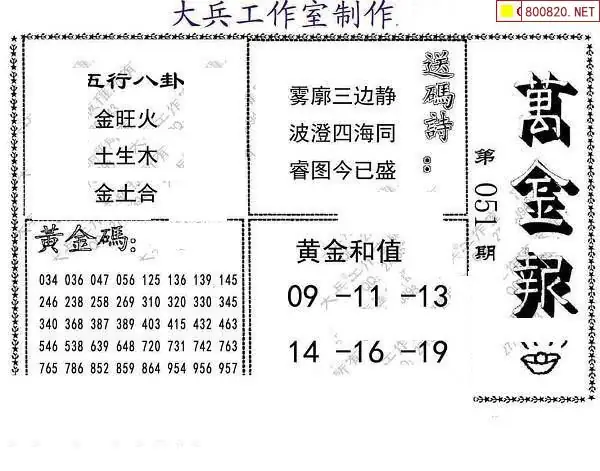 大兵工作室制作
800820.NET
萬金報
第051期
送碼詩：
雾廓三边静
波澄四海同
睿图今已盛
五行八卦
金旺火
土生木
金土合
黃金碼：
034 036 047 056 125 136 139 145
246 238 258 269 310 320 330 345
340 368 387 389 403 415 432 463
546 538 639 648 720 731 742 763
765 786 852 859 864 954 956 957
黄金和值
09 -11 -13
14 -16 -19